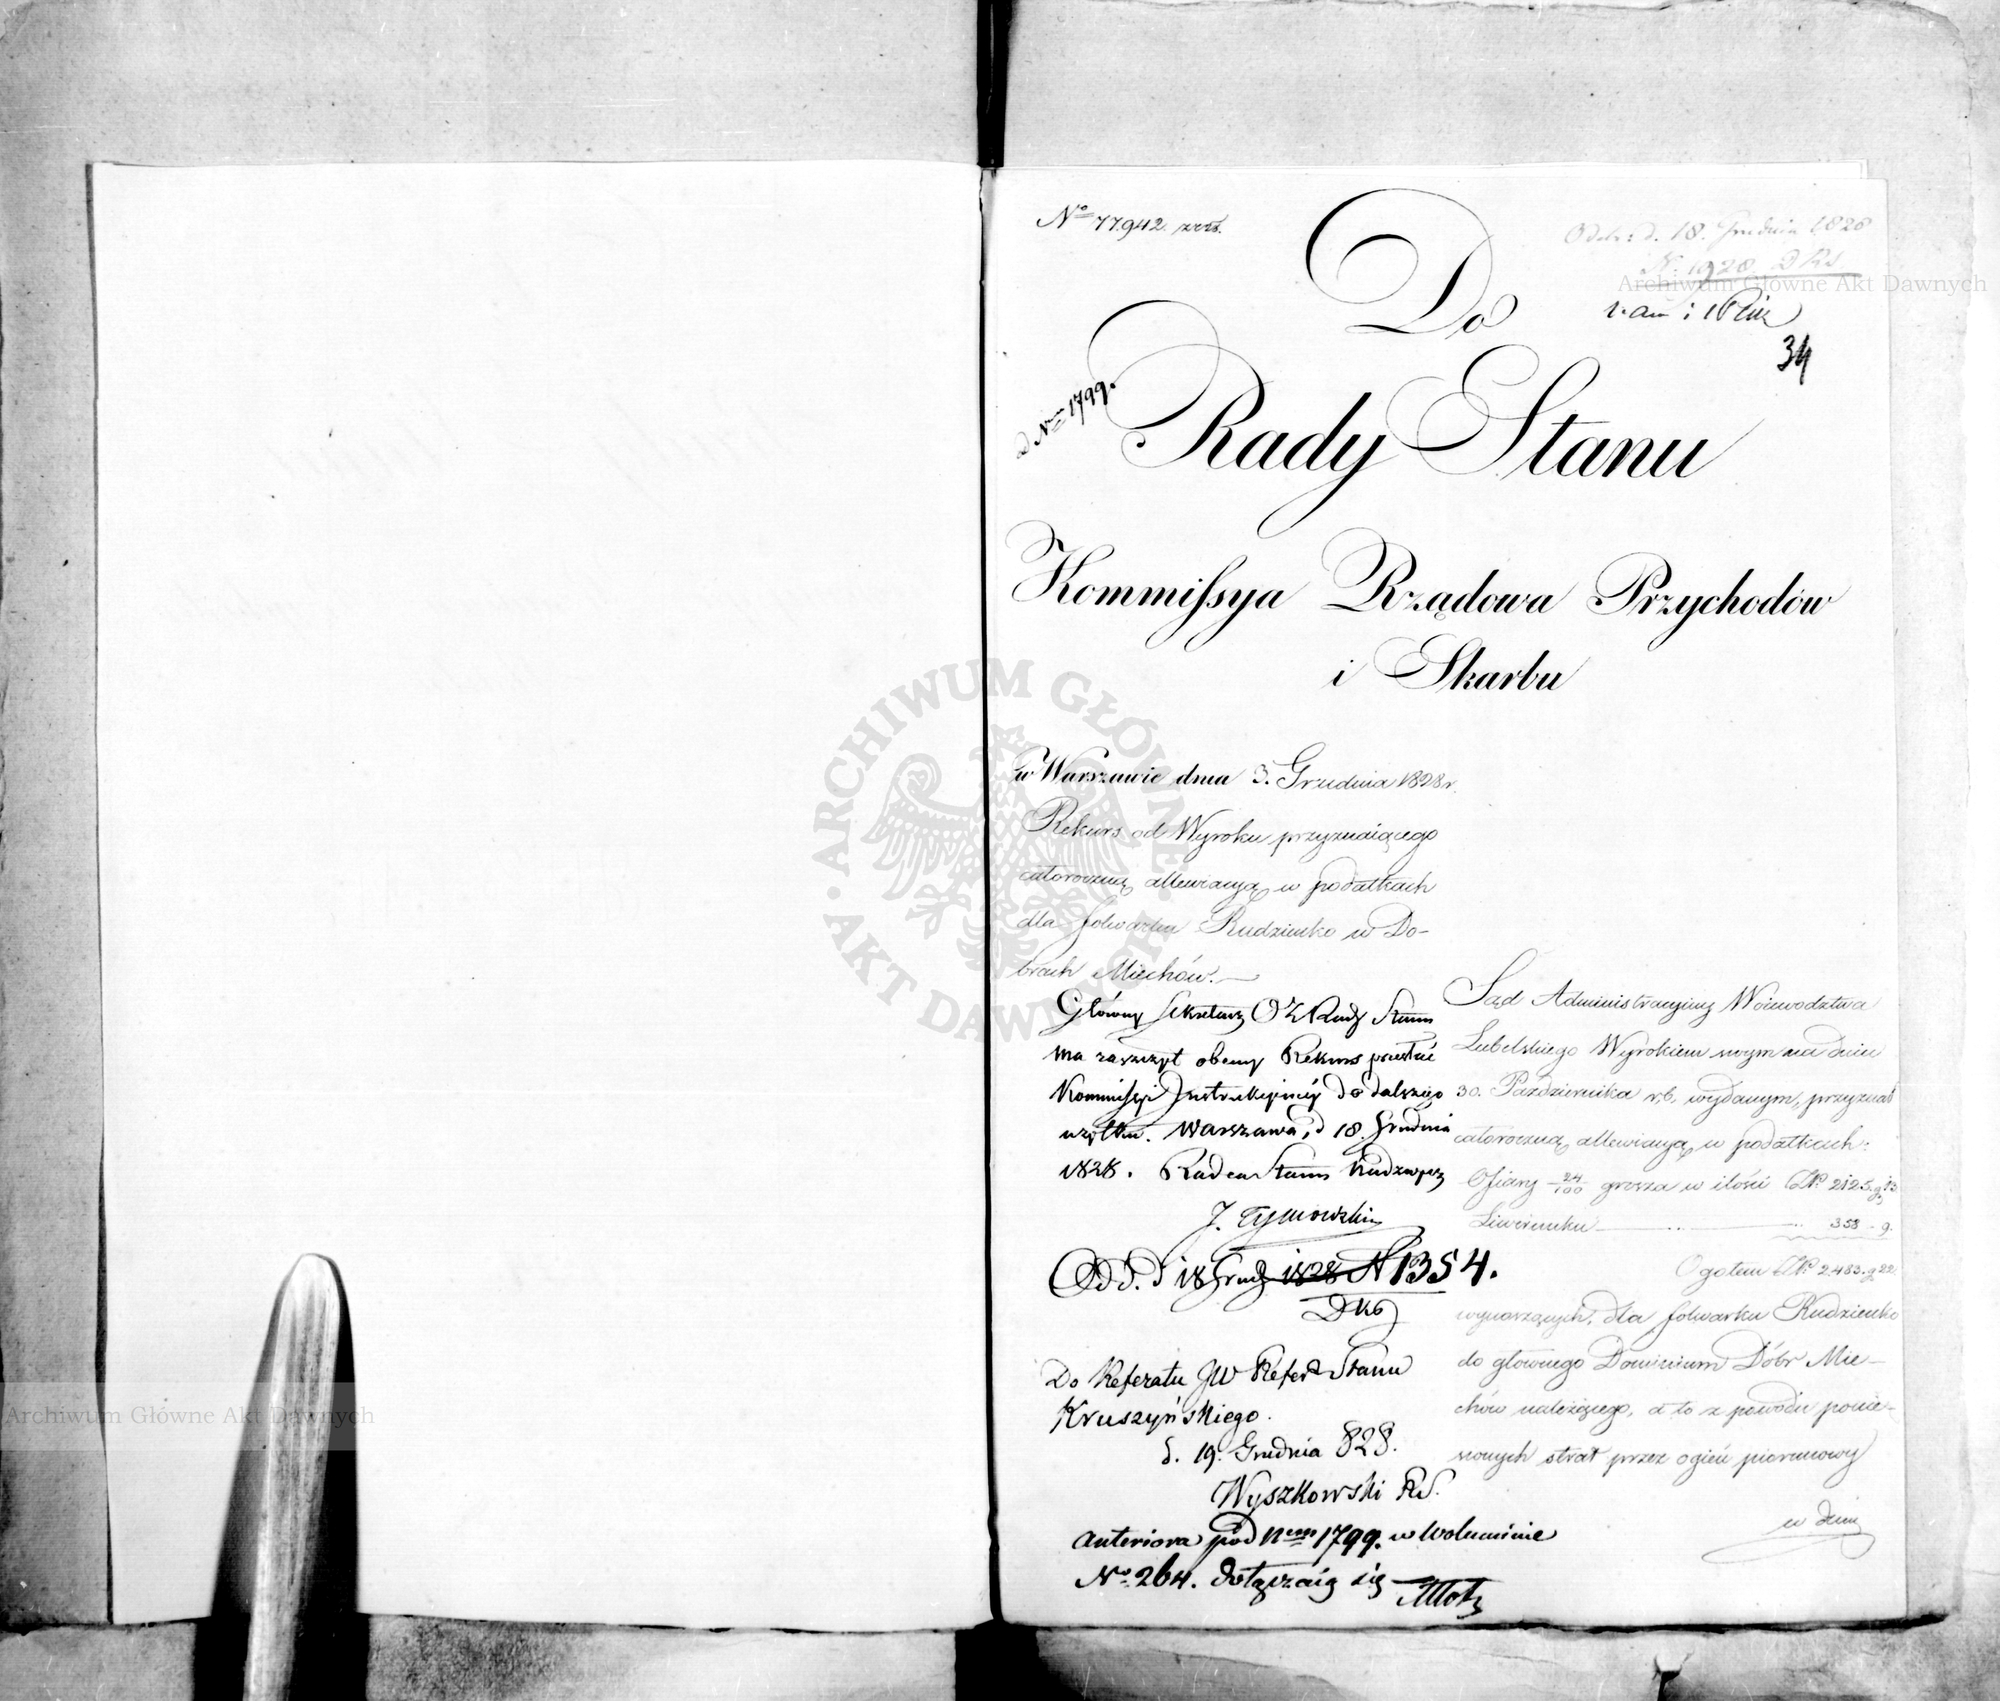 No 77.942.
Odeb: d. 18. Grudnia 1828
N: 1928 DRS
34
Do
d Nr 1799.
Rady Stanu
Kommissya Rządowa Przychodów
i Skarbu
w Warszawie dnia 3. Grudnia 1828 r.
Rekurs od Wyroku przyznaiącego
całoroczną allewiacyą w podatkach
dla folwarku Rudzienko w Do-
brach Miechów.
Główny Sekretarz Rady Stanu
ma zaszczyt obecny Rekurs przesłać
Kommissyi Instrukcyiney do dalszego
użytku. Warszawa, d 18. Grudnia
1828. Radca Stanu Nadzwyczy
J. Tymowski
Od. d 18 Grud 1828 N 1354.
Do Referatu JW Refer Stanu
Kruszyńskiego.
d. 19. Grudnia 828.
Wyszkowski RS.
Anteriora pod Nem 1799. w Woluminie
No 264. dołączaią się
Sąd Administracyiny Woiewodztwa
Lubelskiego Wyrokiem swym na dniu
30. Października r, b, wydanym, przyznał
całoroczną allewiacyą w podatkach:
Ofiary 24/100 grosza w ilości ZłP. 2125. g 13
Liwerunku 358 - 9.
Ogółem ZłP 2483. g 22
wynoszących, dla folwarku Rudzienko
do głownego Dominium Dóbr Mie-
chów należącego, a to z powodu ponie-
sionych strat przez ogień piorunowy
w dniu
ARCHIWUM GŁÓWNE AKT DAWNYCH
Archiwum Główne Akt Dawnych
Archiwum Główne Akt Dawnych